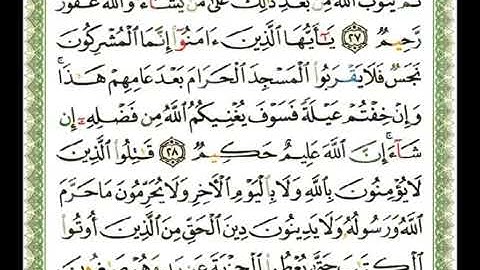 ثُمَّ يَتُوبُ ٱللَّهُ مِنۢ بَعۡدِ ذَٰلِكَ عَلَىٰ مَن يَشَآءُۗ وَٱللَّهُ غَفُورٞ
رَّحِيمٞ ٢٧ يَٰٓأَيُّهَا ٱلَّذِينَ ءَامَنُوٓاْ إِنَّمَا ٱلۡمُشۡرِكُونَ
نَجَسٞ فَلَا يَقۡرَبُواْ ٱلۡمَسۡجِدَ ٱلۡحَرَامَ بَعۡدَ عَامِهِمۡ هَٰذَاۚ
وَإِنۡ خِفۡتُمۡ عَيۡلَةٗ فَسَوۡفَ يُغۡنِيكُمُ ٱللَّهُ مِن فَضۡلِهِۦٓ إِن
شَآءَۚ إِنَّ ٱللَّهَ عَلِيمٌ حَكِيمٞ ٢٨ قَٰتِلُواْ ٱلَّذِينَ
لَا يُؤۡمِنُونَ بِٱللَّهِ وَلَا بِٱلۡيَوۡمِ ٱلۡأٓخِرِ وَلَا يُحَرِّمُونَ مَا حَرَّمَ
ٱللَّهُ وَرَسُولُهُۥ وَلَا يَدِينُونَ دِينَ ٱلۡحَقِّ مِنَ ٱلَّذِينَ أُوتُواْ
ٱلۡكِتَٰبَ حَتَّىٰ يُعۡطُواْ ٱلۡجِزۡيَةَ عَن يَدٖ وَهُمۡ صَٰغِرُونَ